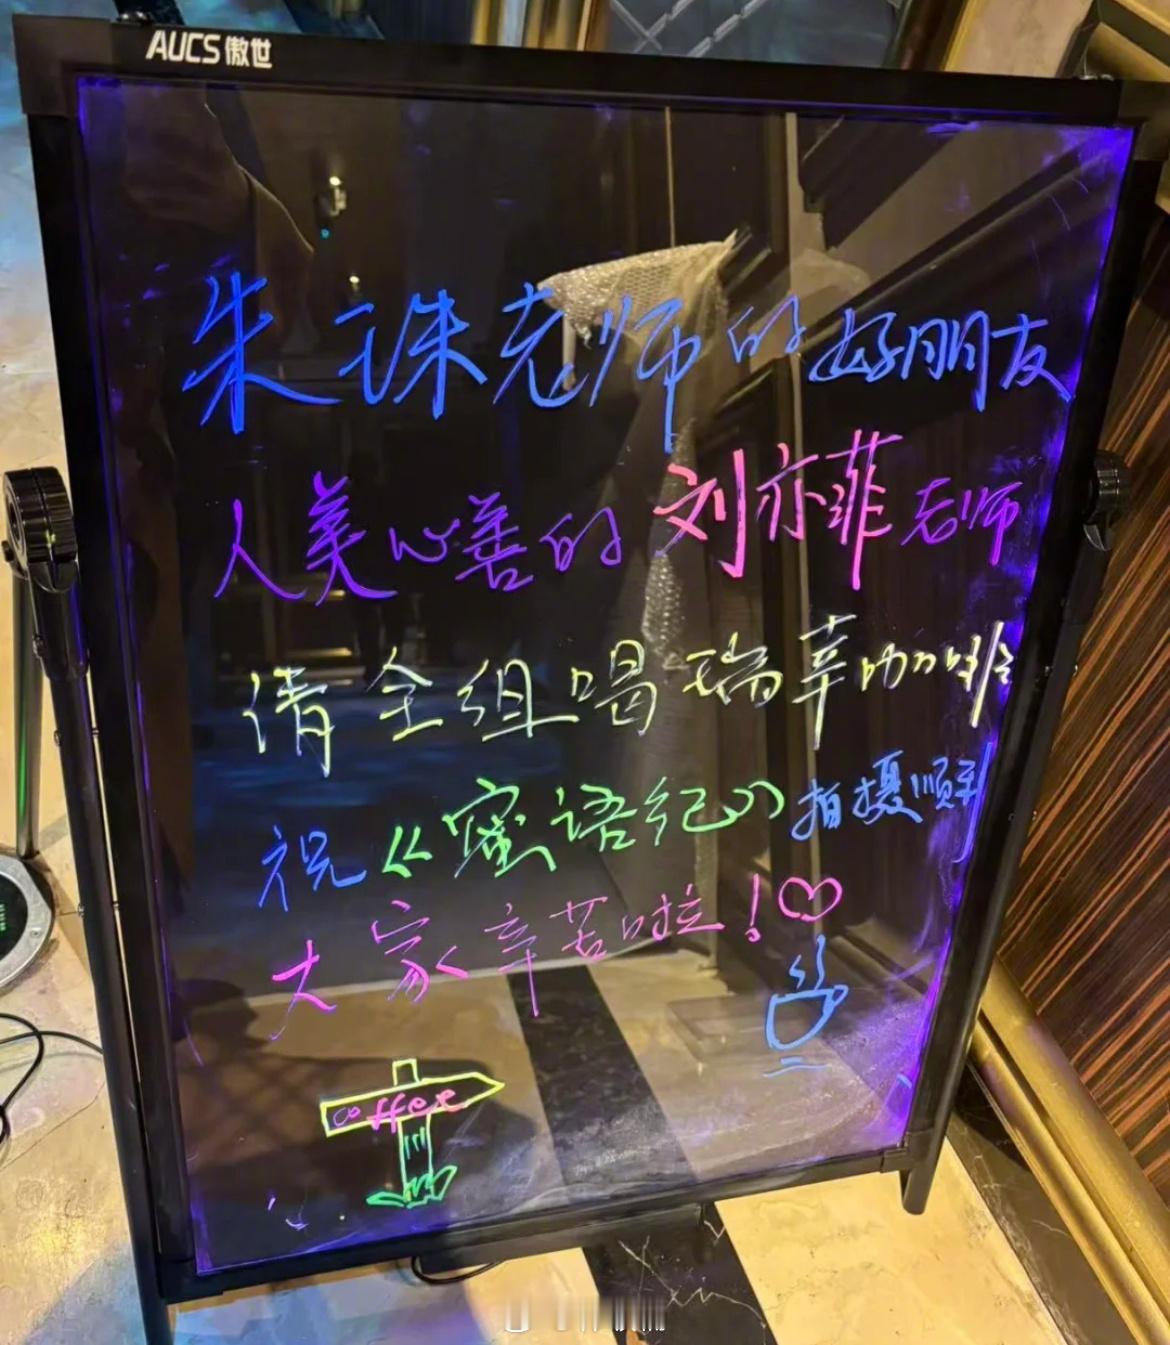 AUCS 傲世
朱珠老师的好朋友
人美心善的刘亦菲老师
请全组喝瑞幸咖啡
祝《蜜语纪》拍摄顺利
大家辛苦啦！♡
coffee